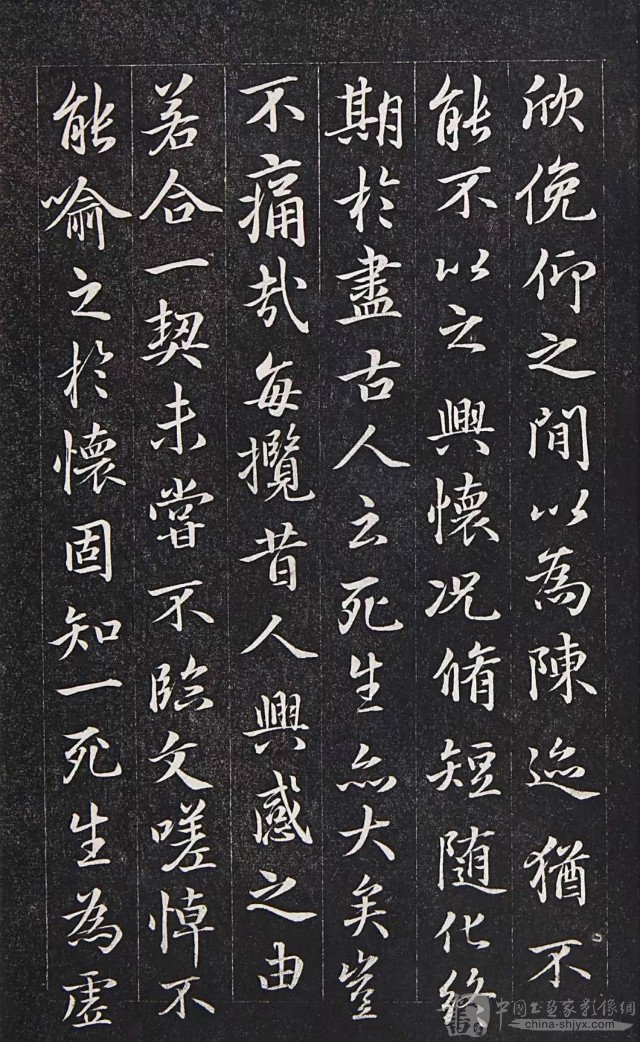 欣俛仰之閒以為陳迹猶不
能不以之興懷况脩短随化終
期於盡古人云死生亦大矣豈
不痛哉每攬昔人興感之由
若合一契未嘗不臨文嗟悼不
能喻之於懷固知一死生為虚
中国书画家影像網
china-shjyx.com